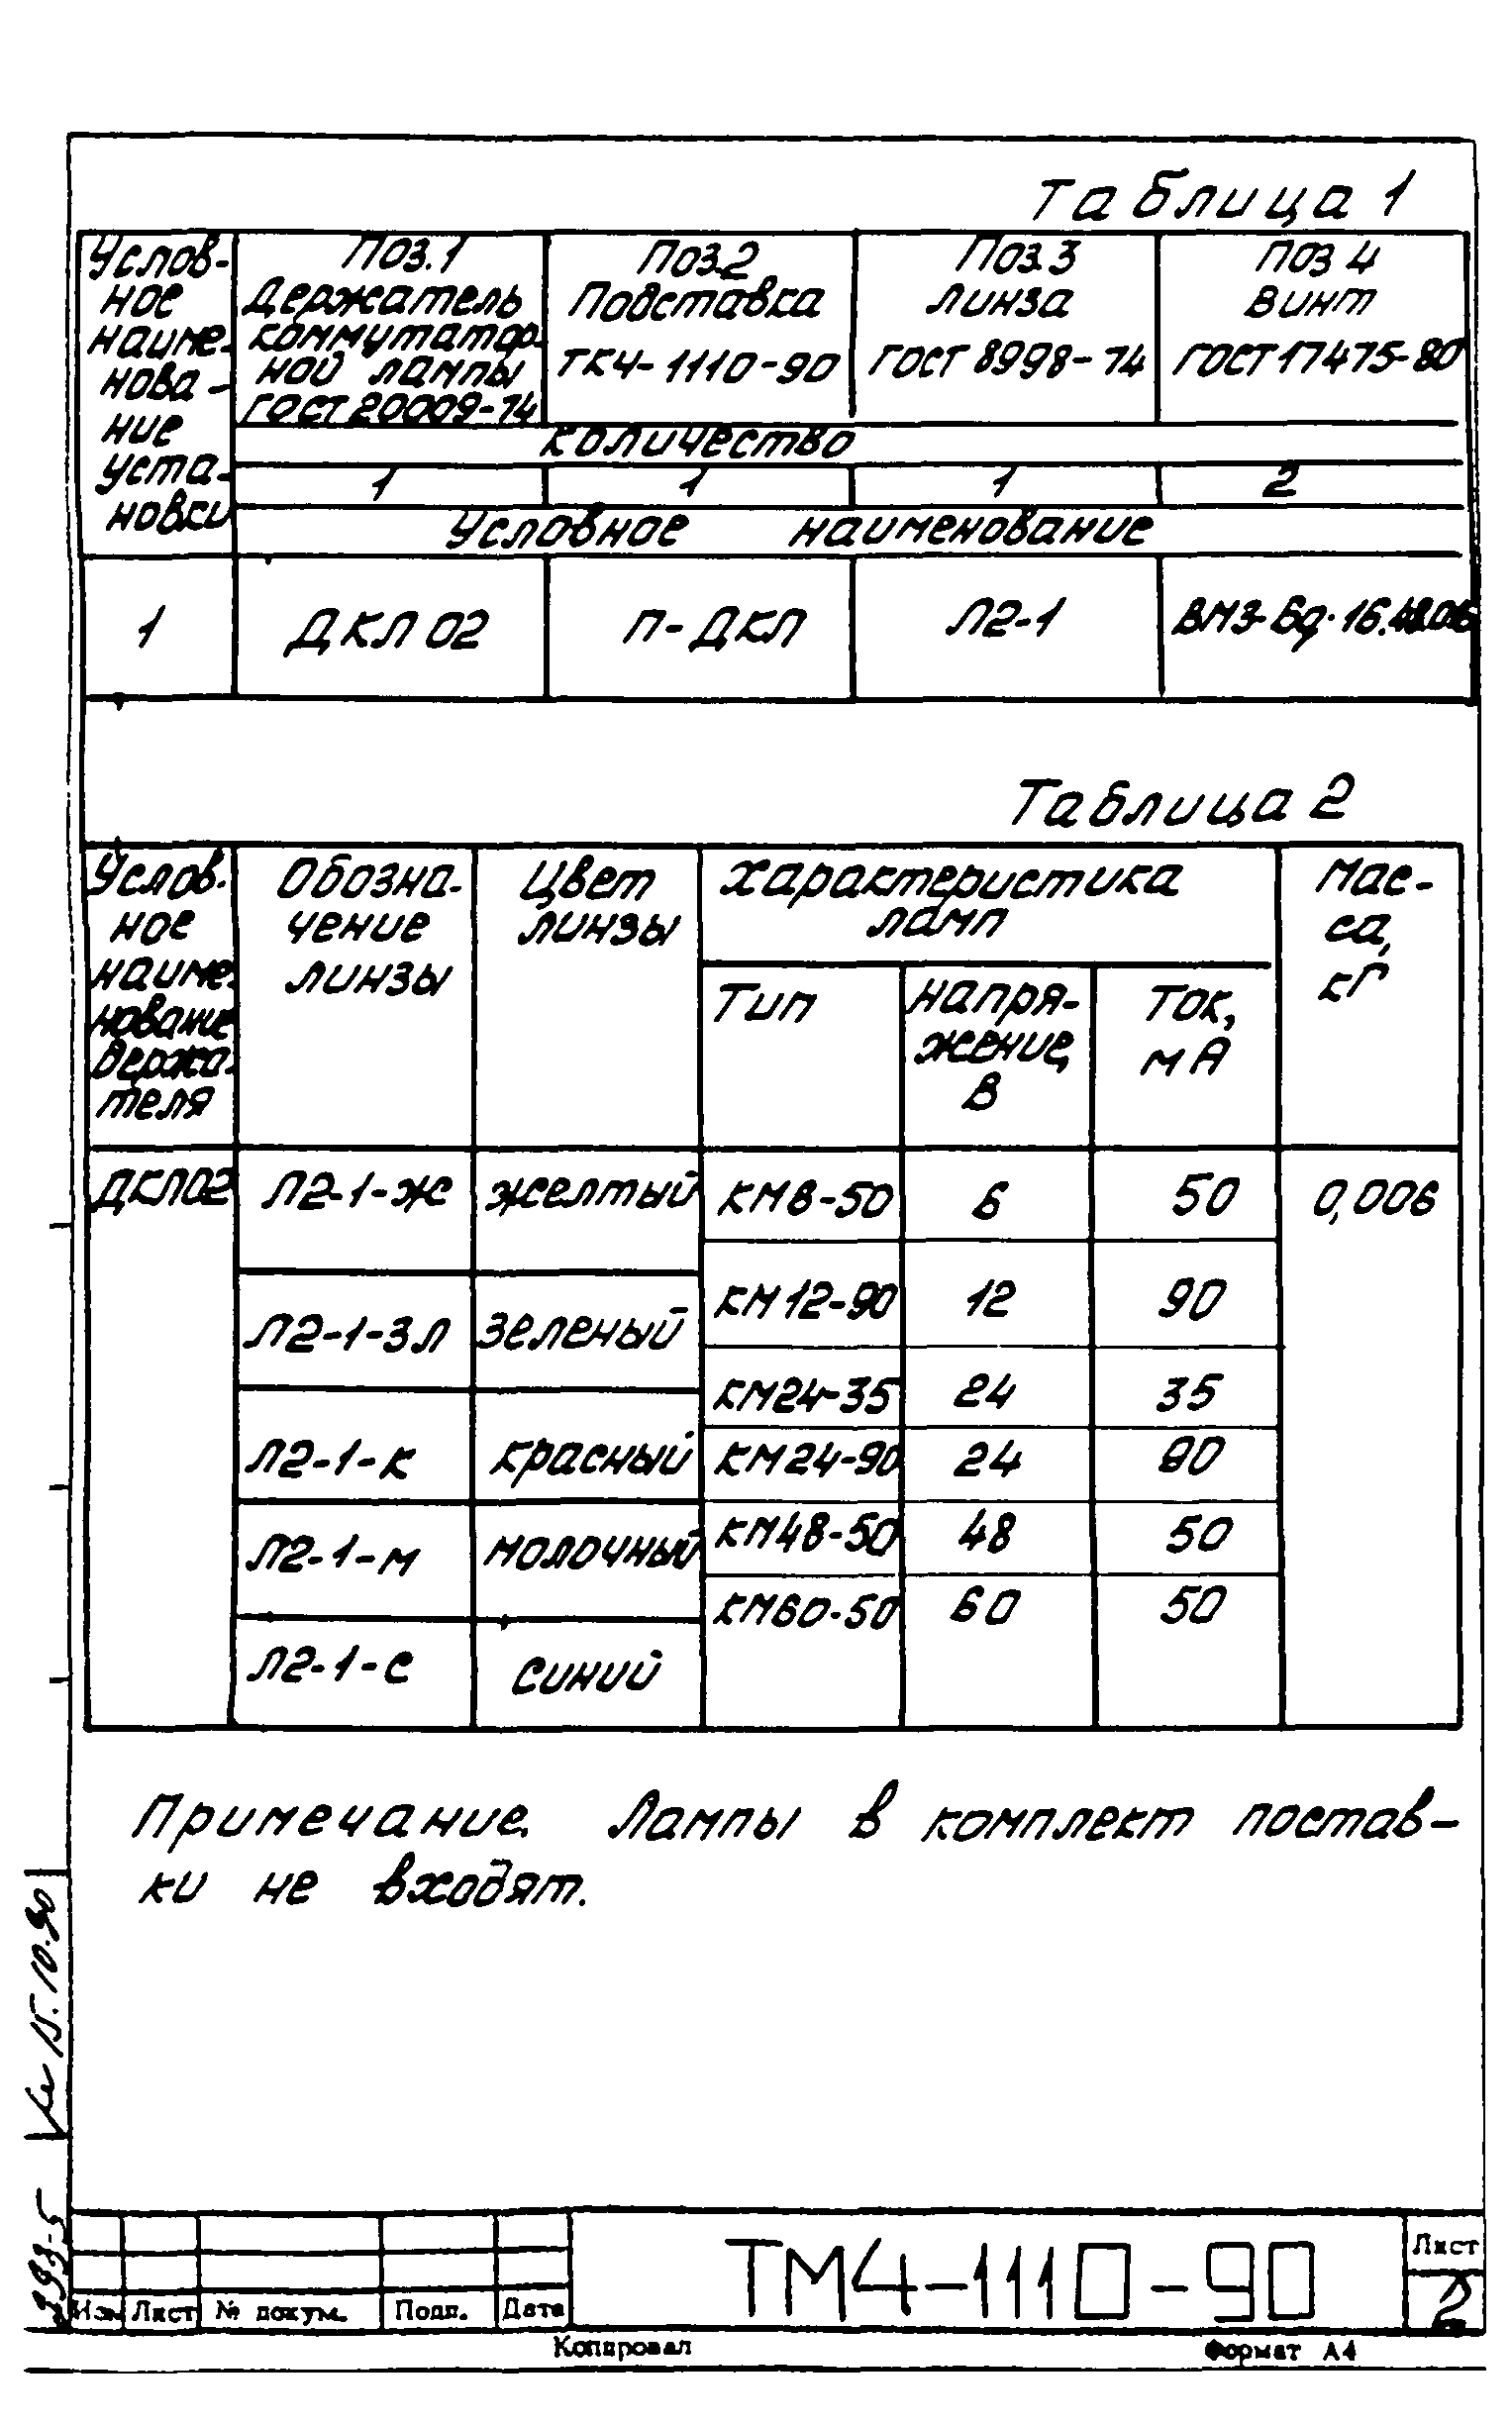 Таблица 1
Услов-
ное
наиме-
нова-
ние
уста-
новки
Поз.1
Держатель
коммутатор-
ной лампы
ГОСТ 20009-74
Поз.2
Подставка
ТК4-1110-90
Поз.3
линза
ГОСТ 8998-74
поз 4
винт
ГОСТ 17475-80
количество
1 1 1 2
Условное наименование
1 ДКЛ 02 П-ДКЛ Л2-1 ВМ3-6g.16.48.016
Таблица 2
Услов-
ное
наиме-
нование
держа-
теля
Обозна-
чение
линзы
Цвет
линзы
характеристика
ламп
Тип
напря-
жение,
В
Ток,
мА
Мас-
са,
кг
ДКЛ02 Л2-1-ж желтый КМ6-50 6 50 0,006
КМ12-90 12 90
Л2-1-зл зеленый
КМ24-35 24 35
Л2-1-к красный КМ24-90 24 90
Л2-1-м молочный КМ48-50 48 50
КМ60-50 60 50
Л2-1-с синий
Примечание. Лампы в комплект постав-
ки не входят.
15.10.90
393-5
Изм Лист № докум. Подп. Дата
ТМ4-1110-90
Лист
2
Копировал Формат А4